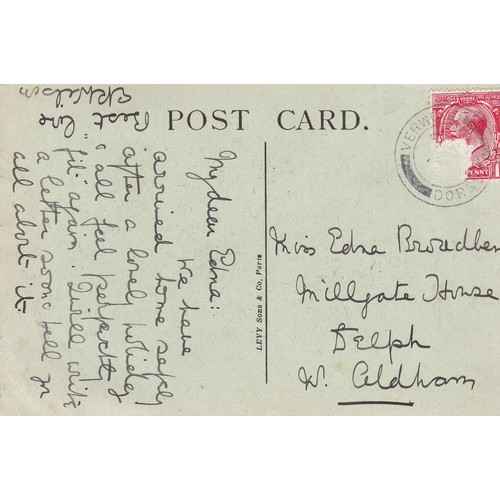 POST CARD.
My dear Edna:
We have
arrived home safely
after a lovely holiday
& all feel perfectly
"fit" again. I will write
a letter soon & tell you
all about it.
Best love
LEVY SONS & CO, Paris
Miss Edna Broadben
Millgate House
Delph
W. Oldham
VERW
DORS
POSTAGE
PENNY